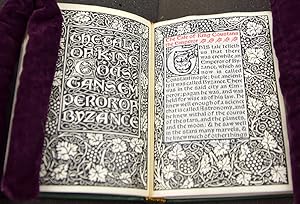 THE TALE
OF KING
COUS
TANS THE
EMPEROR OF
BYZANCE
The Tale of King Coustans
the Emperor
THIS tale telleth
us that there
was erewhile an
Emperor of By-
zance, which as
now is called
Constantinople; but anciently
it was called Byzance. There
was in the said city an Em-
peror; pagan he was, and was
held for wise as of his law. He
knew well enough of a science
that is called Astronomy, and
he knew withal of the course
of the stars, and the planets,
and the moon: & he saw well
in the stars many marvels, &
he knew much of other things